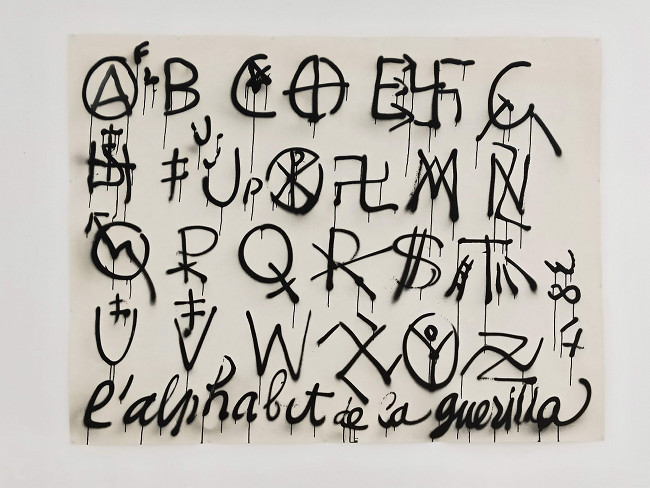 A B C E F G
H J M N
O P Q R $ T
U V W X Y Z
l'alphabet de la guerilla